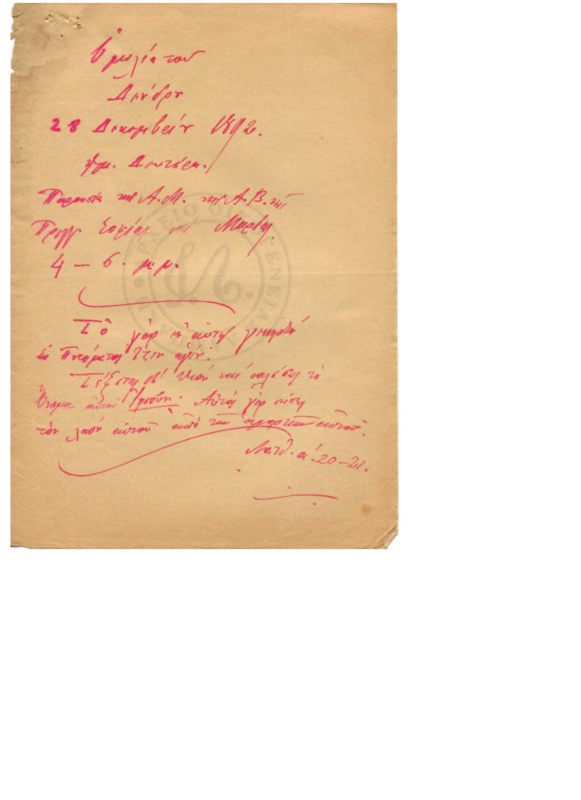 Ὁμιλία τοῦ
Δένδρου
28 Δεκεμβρίου 1892.
ἡμ. Δευτέρα.
Παρουσία τῆς Α.Μ. τῆς Α.Β. τῆς
Πριγγ. Σοφίας καὶ Μαρίας
4 – 6. μ.μ.
Τὸ γὰρ ἐν αὐτῇ γεννηθὲν
ἐκ Πνεύματός ἐστιν ἁγίου.
Τέξεται δὲ υἱὸν καὶ καλέσεις τὸ
ὄνομα αὐτοῦ Ἰησοῦν. Αὐτὸς γὰρ σώσει
τὸν λαὸν αὐτοῦ ἀπὸ τῶν ἁμαρτιῶν αὐτῶν.
Ματθ. α΄ 20–21.